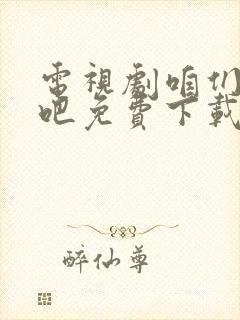 電視劇咱们
吧免費下載
醉仙尊